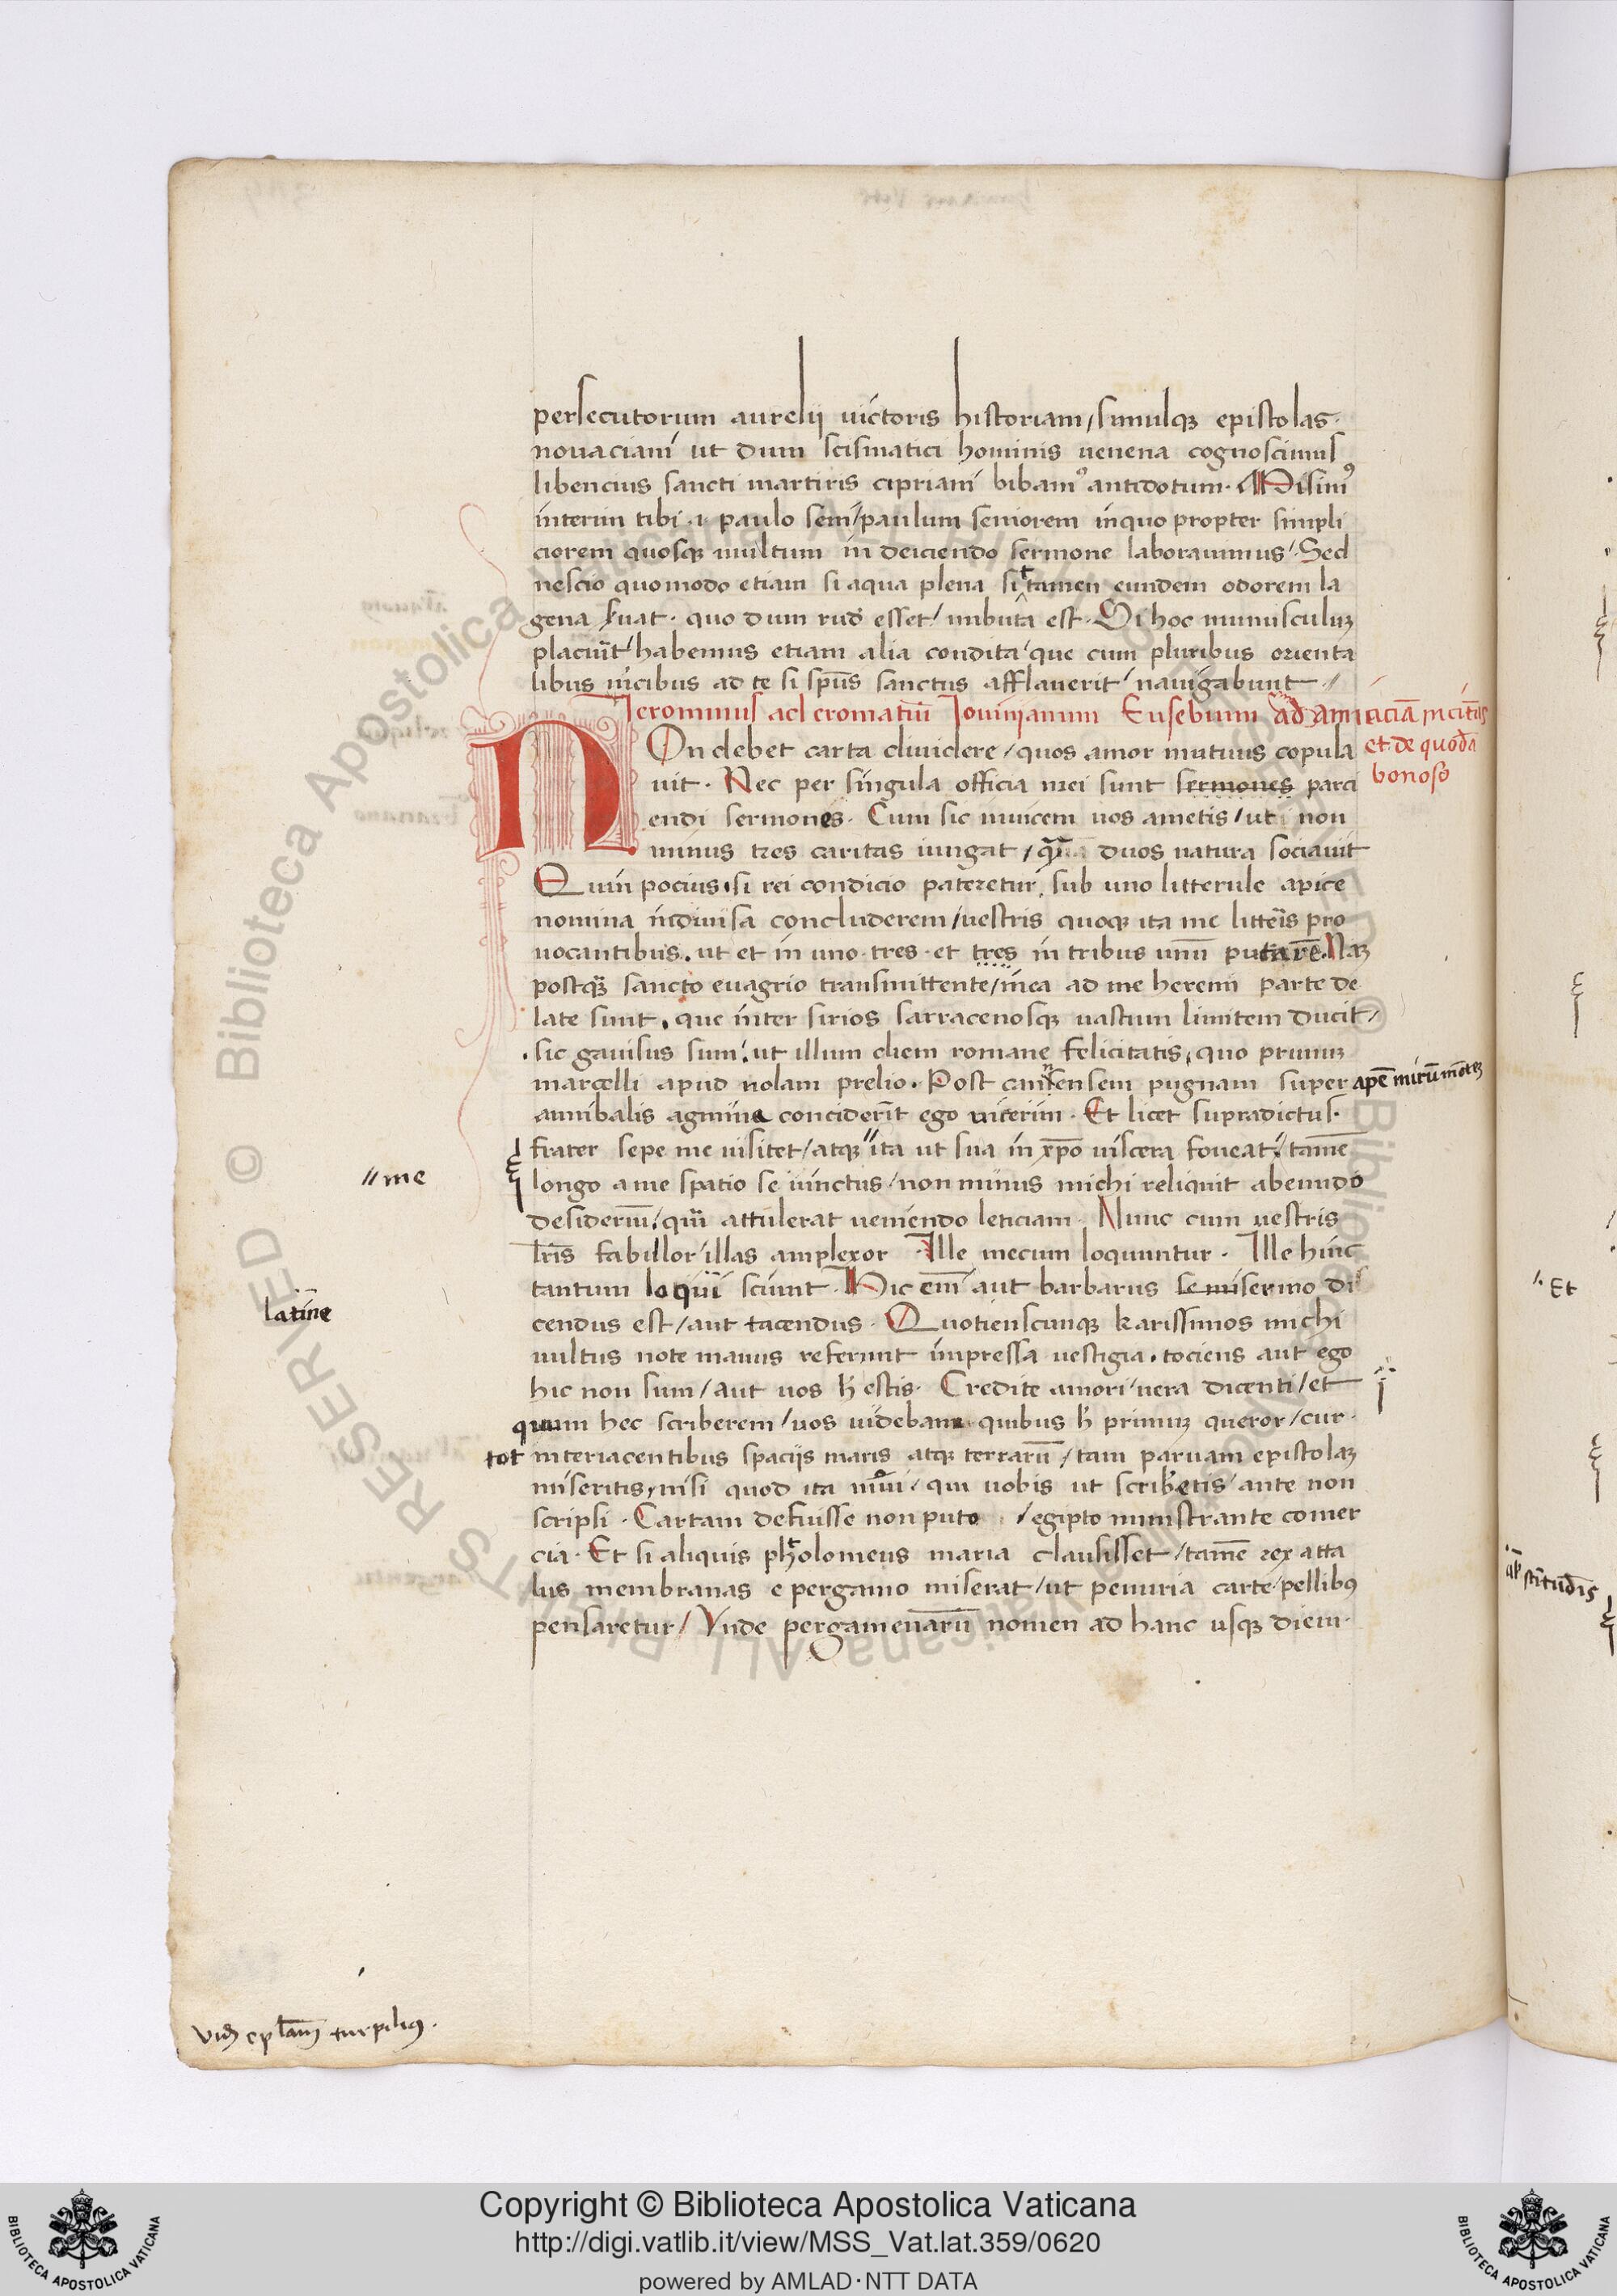 persecutorum aurelij uictoris historiam / simulqȝ epistolas ·
nouaciani ut dum scismatici hominis uenena cognoscimus
libencius sancti martiris cipriani bibamꝰ antidotum · Misimꝰ
interim tibi · i · paulo seni / paulum seniorem in quo propter simpli
ciorem quosqȝ multum in deiciendo sermone laborauimus / Sed
nescio quomodo etiam si aqua plena sit tamen eundem odorem la
gena · quo dum rudis esset / imbuta est · Si hoc munusculuȝ
placuĩt / habemus etiam alia condita / que cum pluribus orienta
libus mcibus ad te si sp̅us sanctus afflauerit / nauigabunt
Jeronimus ad cromatiũ Jouinianum Eusebium ad amiciciã incitãs
et de quodã
bonoso
NOn debet carta diuidere / quos amor mutuus copula
uit · Nec per singula officia mei sunt sermones parci
endi sermones · Cum sic inuicem uos ametis / ut non
minus tres caritas iungat / duos natura sociauit
Quin pocius · si rei condicio pateretur / sub uno litterule apice
nomina indiuisa concluderem / uestris quoqȝ ita me litteris pro
uocantibus · ut et in uno · tres · et tres in tribus unũ putarẽ · Naȝ
postqȝ sancto euagrio transmittente / mea ad me heremi parte de
late sunt · que inter sirios sarracenosqȝ uastum limitem ducit /
· sic gauisus sum / ut illum diem romane felicitatis / quo primuȝ
marcelli apud nolam prelio · Post cannensem pugnam super
annibalis agmina conciderit ego uicerim · Et licet supradictus ·
apẽ mirũ
frater sepe me uisitet / atqȝ // ita ut sua in xp̅o uiscera foueat / tamẽ
// me
longo a me spatio seiunctus / non minus michi reliquit abeundo
desideriũ / quã attulerat ueniendo leticiam · Nunc cum uestris
lr̅is fabillor / illas amplexor · Ille mecum loquuntur · Ille hinc
tantum loqui sciunt · Hic em̅ aut barbarus semi sermo di
latine
cendus est / aut tacendus · Quotienscunqȝ karissimos michi
uultus note manus referunt impressa uestigia · tociens aut ego
hic non sum / aut uos h̅ estis · Credite amori / uera dicenti / et
quum hec scriberem / uos uidebam · quibus h̅ primuȝ queror / cur ·
tot interiacentibus spacijs maris atqȝ terrarũ / tam paruam epistolaȝ
miseritis / nisi quod ita / qui uobis ut scribetis / ante non
scripsi · Cartam defuisse non puto / egipto ministrante comer
cia · Et si aliquis ptholomeus maria clausisset / tamẽ rex atta
lus membranas e pergamo miserat / ut penuria carte / pellibꝰ
pensaretur / Vnde pergamenarũ nomen ad hanc usqȝ diem ·
Et
turpiliꝰ ·
© Biblioteca Apostolica Vaticana ALL RIGHTS RESERVED
Copyright © Biblioteca Apostolica Vaticana
http://digi.vatlib.it/view/MSS_Vat.lat.359/0620
powered by AMLAD·NTT DATA
BIBLIOTECA APOSTOLICA VATICANA
BIBLIOTECA APOSTOLICA VATICANA